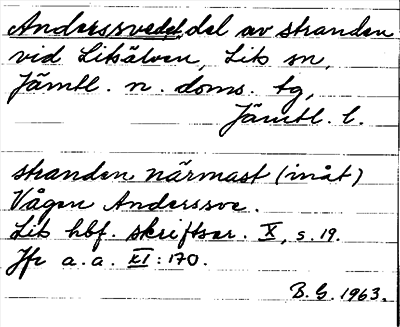 Anderssvedet, del av stranden
vid Litsälven, Lits sn,
Jämtl. n. doms. tg,
Jämtl. l.
stranden närmast (inåt)
Vågen Anderssve.
Lits hbf. skriftser. X, s. 19.
Jfr a.a. XI:170.
B.G. 1963.